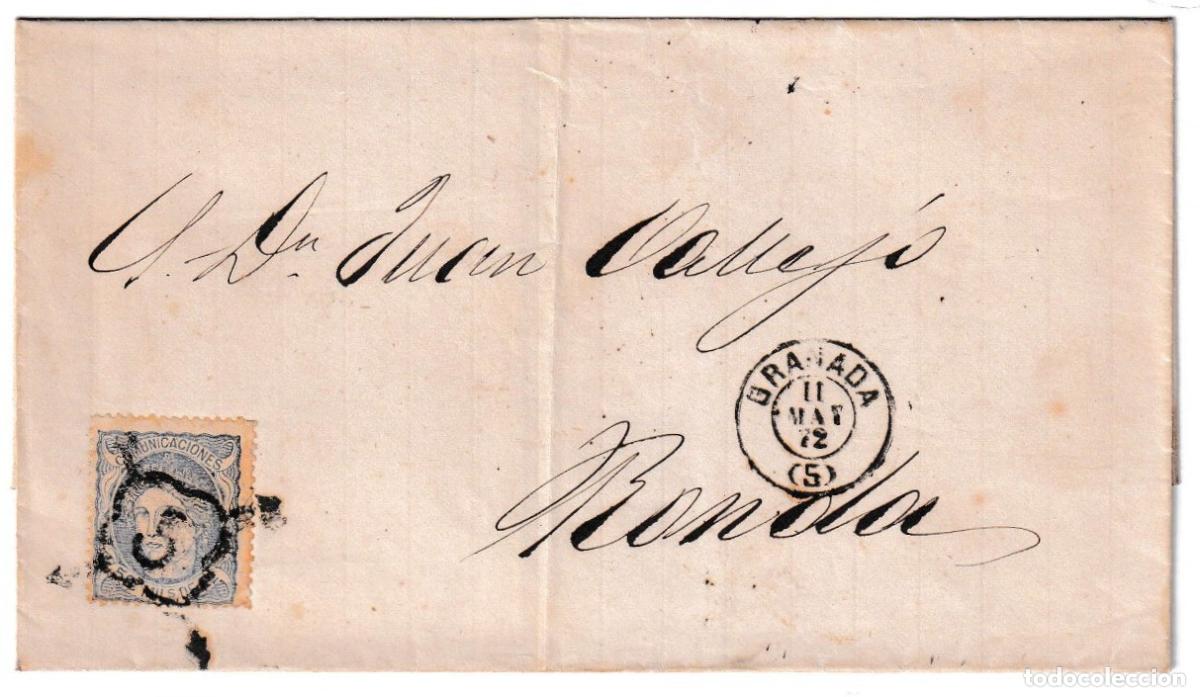 S. Dn Juan Vallejo
GRANADA
11
MAY
72
(5)
Ronda
COMUNICACIONES
MILS DE
todocoleccion